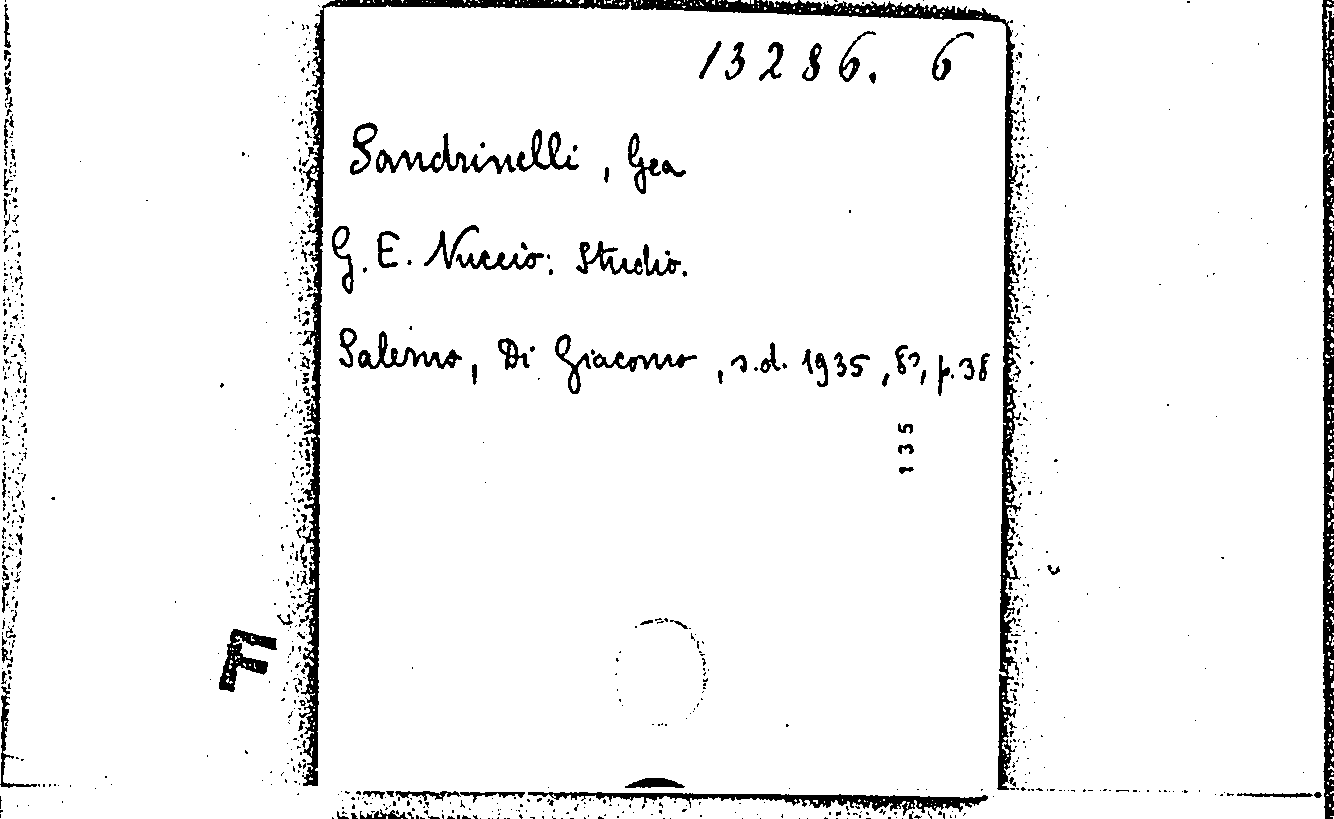 13286. 6
Sandrinelli, Gea
G. E. Nuccio: Studio.
Salerno, Di Giacomo, s.d. 1935, 8°, p. 38
135
F